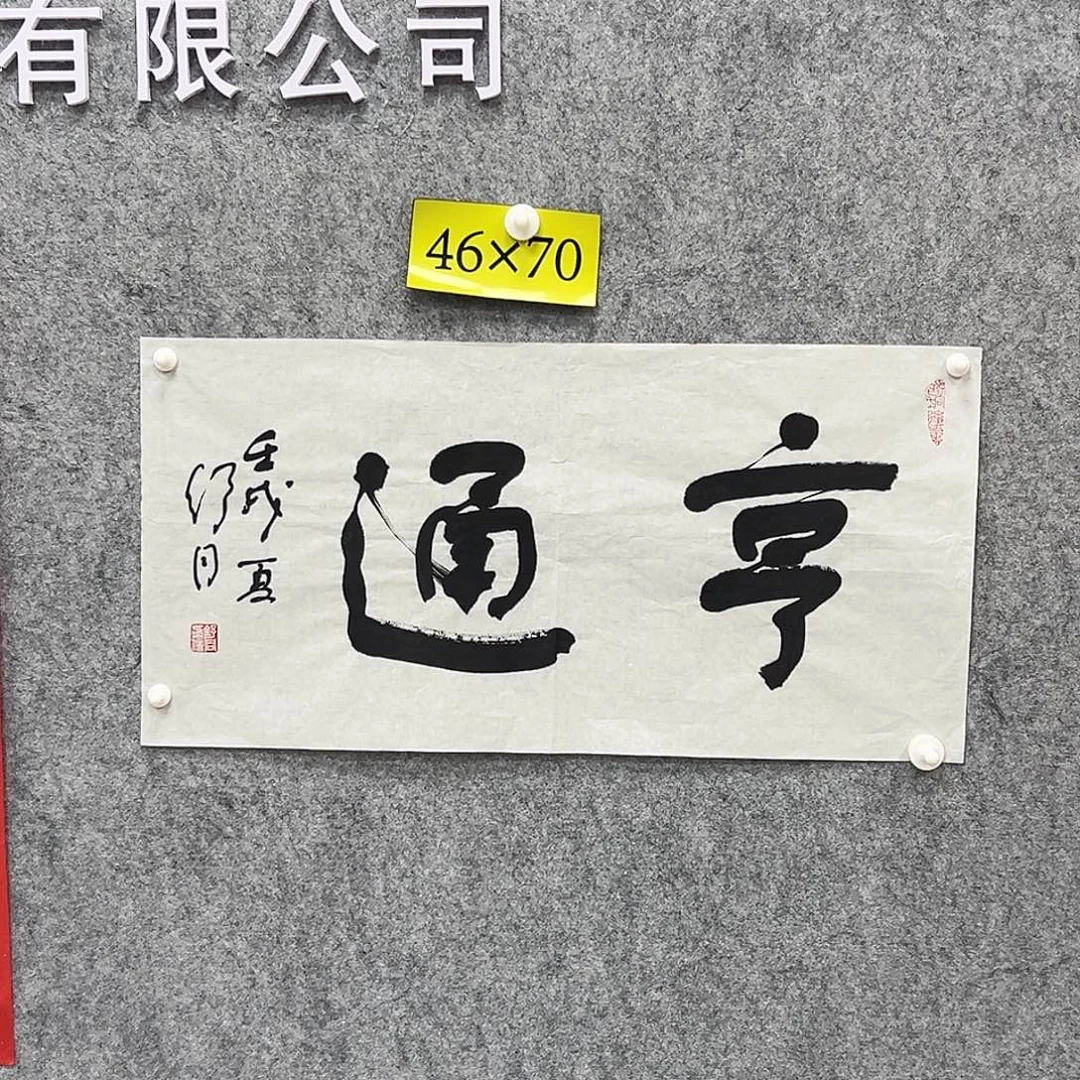 有限公司
46×70
亨通
壬戌夏
舒同